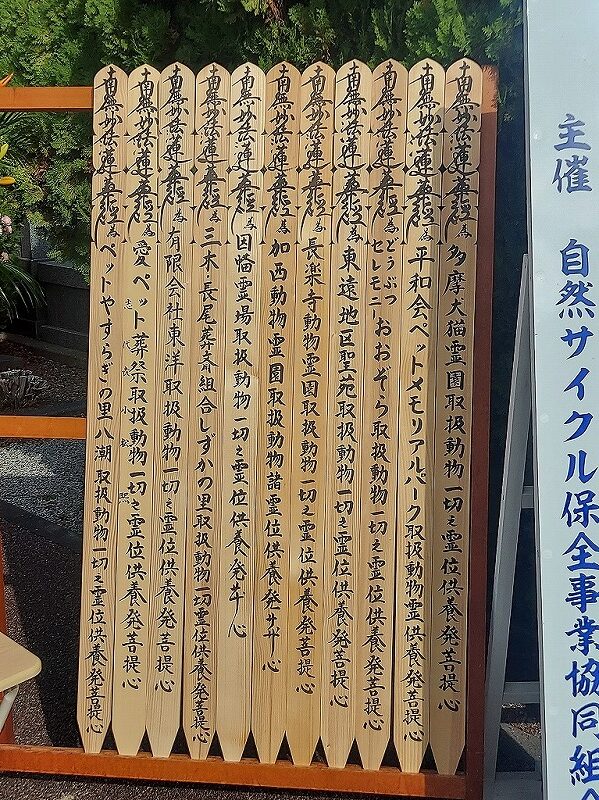 主催　自然サイクル保全事業協同組合
南無妙法蓮華経 為 多摩犬猫霊園取扱動物一切之霊位供養発菩提心
南無妙法蓮華経 為 平和会ペットメモリアルパーク取扱動物霊供養発菩提心
南無妙法蓮華経 為 どうぶつセレモニーおおぞら取扱動物一切之霊位供養発菩提心
南無妙法蓮華経 為 東遠地区聖苑取扱動物一切之霊位供養発菩提心
南無妙法蓮華経 為 長楽寺動物霊園取扱動物一切之霊位供養発菩提心
南無妙法蓮華経 為 加西動物霊園取扱動物諸霊位供養発菩提心
南無妙法蓮華経 為 霊場取扱動物一切之霊位供養発菩提心
南無妙法蓮華経 為 三木・長尾葬斎組合しずかの里取扱動物一切霊位供養発菩提心
南無妙法蓮華経 為 有限会社東洋取扱動物一切之霊位供養発菩提心
南無妙法蓮華経 為 愛ペット葬祭取扱動物一切之霊位供養発菩提心
南無妙法蓮華経 為 ペットやすらぎの里八潮取扱動物一切之霊位供養発菩提心